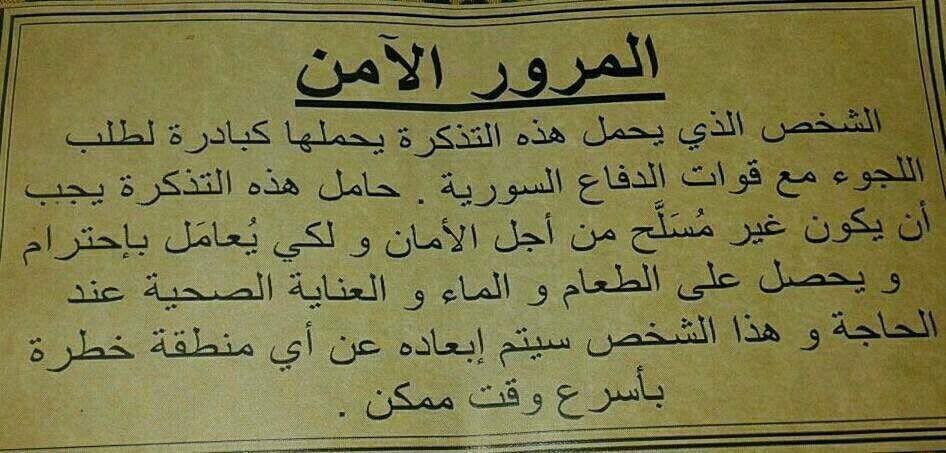 المرور الآمن
الشخص الذي يحمل هذه التذكرة يحملها كبادرة لطلب
اللجوء مع قوات الدفاع السورية . حامل هذه التذكرة يجب
أن يكون غير مُسَلَّح من أجل الأمان و لكي يُعامَل بإحترام
و يحصل على الطعام و الماء و العناية الصحية عند
الحاجة و هذا الشخص سيتم إبعاده عن أي منطقة خطرة
بأسرع وقت ممكن .